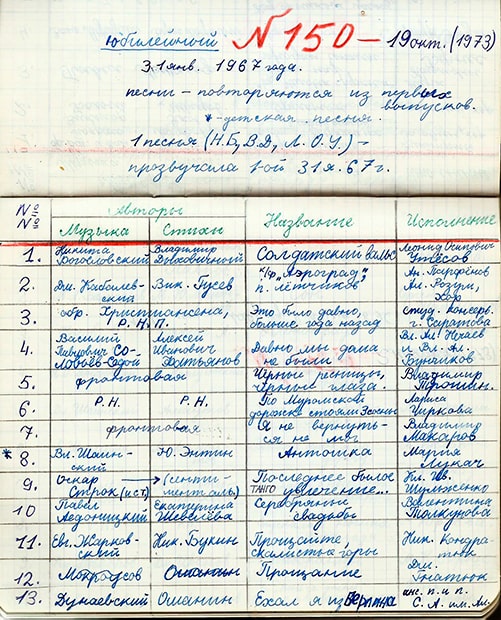 юбилейный № 150 – 19 окт. (1973)
31 янв. 1967 года.
песни – повторяются из первых
выпусков.
*-детская песня.
1 песня (Н.Б, В.Д, Л.О.У.) –
прозвучала 1-ой 31 я. 67 г.
N п/о Авторы Название Исполнение
Музыка Стихи
1. Никита Богословский Владимир Дыховичный Солдатский вальс Леонид Осипович Утёсов
2. Дм. Кабалевский Вик. Гусев К/ф „Аэроград" п. лётчиков Ан. Парфёнов Ал. Розум, хор
3. обр. Христиансена, Р.Н.П. Это было давно, больше года назад студ. консерв. г. Саратова
4. Василий Павлович Соловьёв-Седой Алексей Иванович Фатьянов Давно мы дома не были Вл. Ал. Нечаев и Вл. Ал. Бунчиков
5. фронтовая Чёрные ресницы, чёрные глаза. Владимир Трошин.
6. Р.Н. Р.Н. По Муромской дорожке стояли 3 сосны Лариса Чиркова
7. фронтовая Я не вернуться не мог Владимир Макаров
* 8. Вл. Шаинский Ю. Энтин Антошка Мария Лукач
9. Оскар Строк (ист) → (сентименталь) Последнее былое танго увлечение... Кл. Ив. Шульженко
10 Павел Аедоницкий Екатерина Шевелёва Серебряные свадьбы Валентина Толкунова
11. Евг. Жарковский Ник. Букин Прощайте, скалистые горы Ник. Кондратюк
12. Мокроусов Ошанин Прощание Дм. Гнатюк
13. Дунаевский Ошанин Ехал я из Берлина анс. п. и п. С. А. им. Ал.